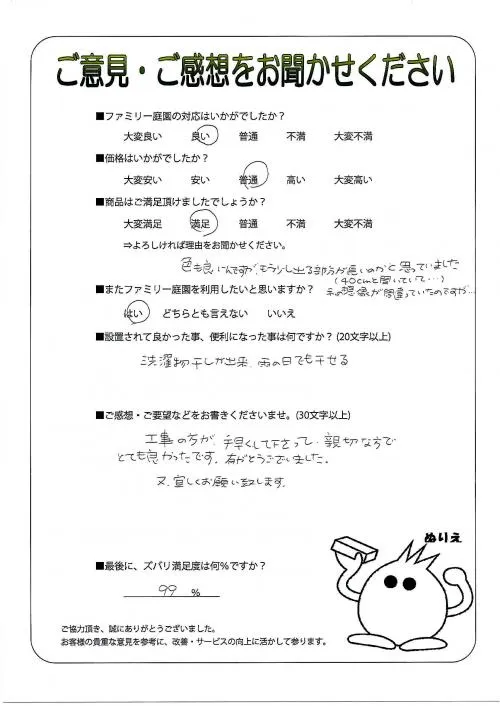 ご意見・ご感想をお聞かせください
■ファミリー庭園の対応はいかがでしたか？
大変良い 良い 普通 不満 大変不満
■価格はいかがでしたか？
大変安い 安い 普通 高い 大変高い
■商品はご満足頂けましたでしょうか？
大変満足 満足 普通 不満 大変不満
⇒よろしければ理由をお聞かせください。
色も良いんですが、もう少し出る部分が長いのかと思っていました
(40cmと聞いていて…)
■またファミリー庭園を利用したいと思いますか？ 私の想像が間違っていたのですが…
はい どちらとも言えない いいえ
■設置されて良かった事、便利になった事は何ですか？(20文字以上)
洗濯物干しが出来、雨の日でも干せる
■ご感想・ご要望などをお書きくださいませ。(30文字以上)
工事の方が、手早くして下さって、親切な方で
とても良かったです。有がとうございました。
又、宜しくお願い致します。
ぬりえ
■最後に、ズバリ満足度は何％ですか？
99 ％
ご協力頂き、誠にありがとうございました。
お客様の貴重な意見を参考に、改善・サービスの向上に活かして参ります。